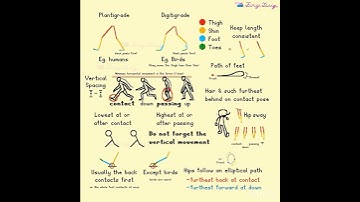 Plantigrade
Digitigrade
Thigh
Shin
Foot
Toes
Keep length
consistent
Eg. humans
Eg. Birds
Path of feet
Vertical
Spacing
contact down passing up
Hair & such furthest
behind on contact pose
Lowest at or
after contact
Highest at or
after passing
Hip sway
Do not forget the
vertical movement
contact
Usually the back
contacts first
Except lords
Hips follow an elliptical path
-furthest back at contact
-furthest forward at down